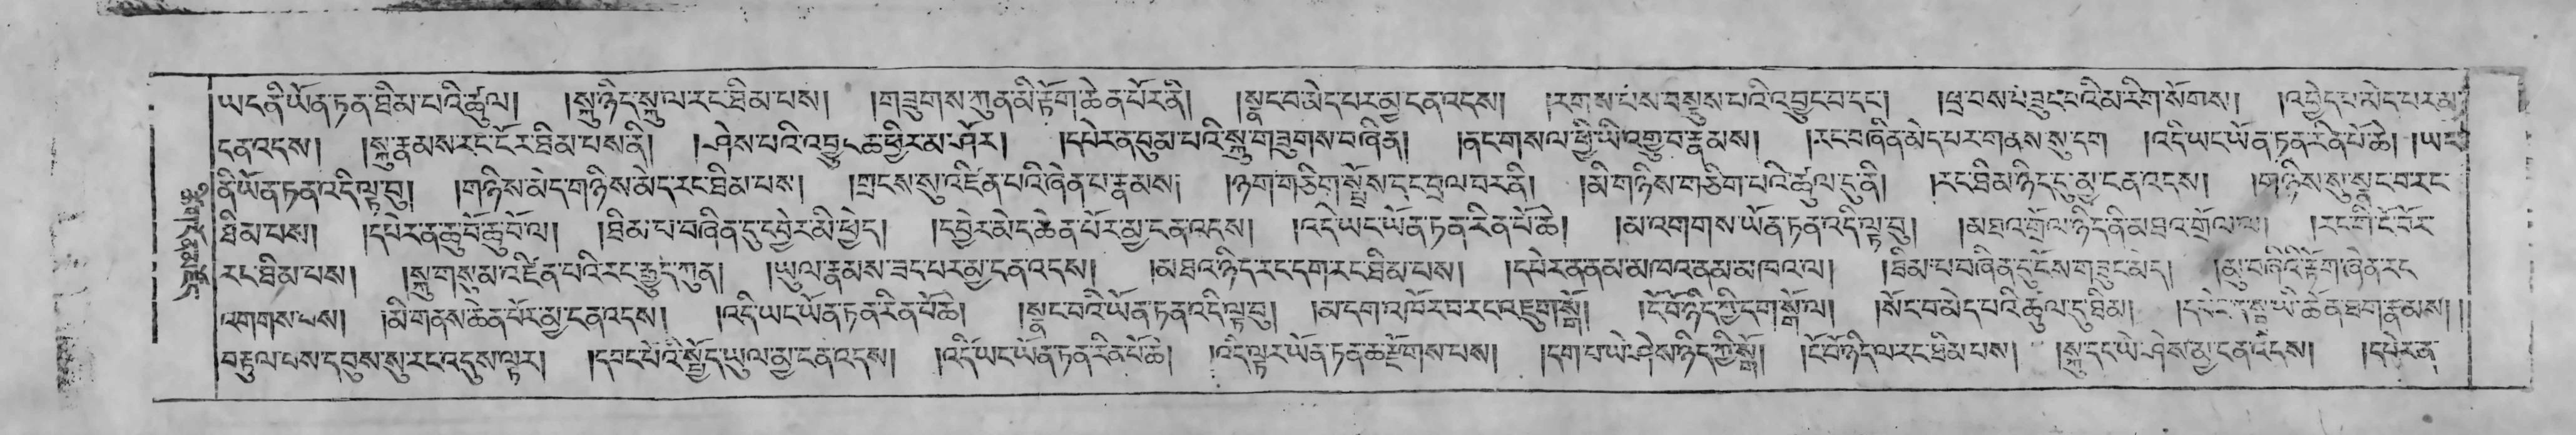 ཡང་ནི་ཡོན་ཏན་ཐིམ་པའི་ཚུལ། །སྐུ་ཉིད་སྐུ་ལ་རང་ཐིམ་པས། །གཟུགས་ཀུན་མི་རྟོག་ཆེན་པོར་ནི། །སྣང་བ་མེད་པར་མྱ་ངན་འདས། །རགས་པས་བསྡུས་པའི་འབྱུང་བ་དང་། །ཕྲ་བས་བཟུང་བའི་མ་རིག་སོགས། །འབྱེད་པ་མེད་པར་མྱ་
ངན་འདས། །སྐུ་རྣམས་རང་ངོར་ཐིམ་པས་ནི། །ཤེས་པའི་འབྱུང་ཆ་ཕྱིར་མ་ཤོར། །དཔེར་ན་བུམ་པའི་སྐུ་གཟུགས་བཞིན། །ནང་གསལ་ཕྱི་ཡི་འགྱུ་བ་རྣམས། །རང་བཞིན་མེད་པར་གནས་སུ་དག །འདི་ཡང་ཡོན་ཏན་རིན་པོ་ཆེ། །ཡང་
ནི་ཡོན་ཏན་འདི་ལྟ་བུ། །གཉིས་མེད་གཉིས་མེད་རང་ཐིམ་པས། །གྲངས་སུ་འཛིན་པའི་ཞེན་པ་རྣམས། །ཉག་གཅིག་སྤྲོས་དང་བྲལ་བར་ནི། །མི་གཉིས་གཅིག་པའི་ཚུལ་དུ་ནི། །རང་ཐིམ་ཉིད་དུ་མྱ་ངན་འདས། །གཉིས་སུ་སྣང་བ་རང་
ཐིམ་པས། །དཔེར་ན་ཆུ་བོ་ཆུ་བོ་ལ། །ཐིམ་པ་བཞིན་དུ་དབྱེར་མི་ཕྱེད། །དབྱེར་མེད་ཆེན་པོར་མྱ་ངན་འདས། །འདི་ཡང་ཡོན་ཏན་རིན་པོ་ཆེ། །མ་འགགས་ཡོན་ཏན་འདི་ལྟ་བུ། །མཐའ་གྲོལ་ཉིད་ནི་མཐའ་གྲོལ་ལ། །རང་གི་ངོ་བོར་
རང་ཐིམ་པས། །སྐུ་གསུམ་འཛིན་པའི་རང་རྒྱུད་ཀུན། །ཡུལ་རྣམས་ཟད་པར་མྱ་ངན་འདས། །མཐའ་ཉིད་རང་དག་རང་ཐིམ་པས། །དཔེར་ན་ནམ་མཁའ་ནམ་མཁའ་ལ། །ཐིམ་པ་བཞིན་དུ་ངོས་གཟུང་མེད། །མུ་བཞིའི་རྟོག་ཞེན་རང་
འགགས་པས། །མི་གནས་ཆེན་པོར་མྱ་ངན་འདས། །འདི་ཡང་ཡོན་ཏན་རིན་པོ་ཆེ། །སྣང་བའི་ཡོན་ཏན་འདི་ལྟ་བུ། །མ་དག་འཁོར་བ་རང་འཇུག་སྒོ། །ངོ་བོ་ཉིད་ཀྱི་དག་སྒོ་ལ། །སོང་བ་མེད་པའི་ཚུལ་དུ་ཐིམ། །དཔེར་ན་ ཡི་ཚོན་ཐག་རྣམས། །
བརྟུལ་པས་དབུས་སུ་རང་འདུས་ལྟར། །དབང་པོའི་སྤྱོད་ཡུལ་མྱ་ངན་འདས། །འདི་ཡང་ཡོན་ཏན་རིན་པོ་ཆེ། །འདི་ལྟར་ཡོན་ཏན་ཆ་རྫོགས་པས། །དག་པ་ཡེ་ཤེས་ཉིད་ཀྱི་སྒོ། །ངོ་བོ་ཉིད་ལ་རང་ཐིམ་པས། །སྐུ་དང་ཡེ་ཤེས་མྱ་ངན་འདས། །དཔེར་ན་